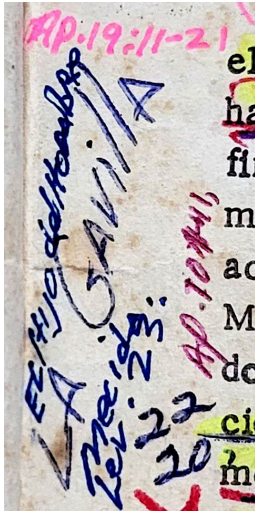 AP.19:11-21
EL HIJO del Hombre
LA GAVILLA
Mecida:
Lev. 23:
22
20
el
ha
fi
m
ac
M
do
cie
me